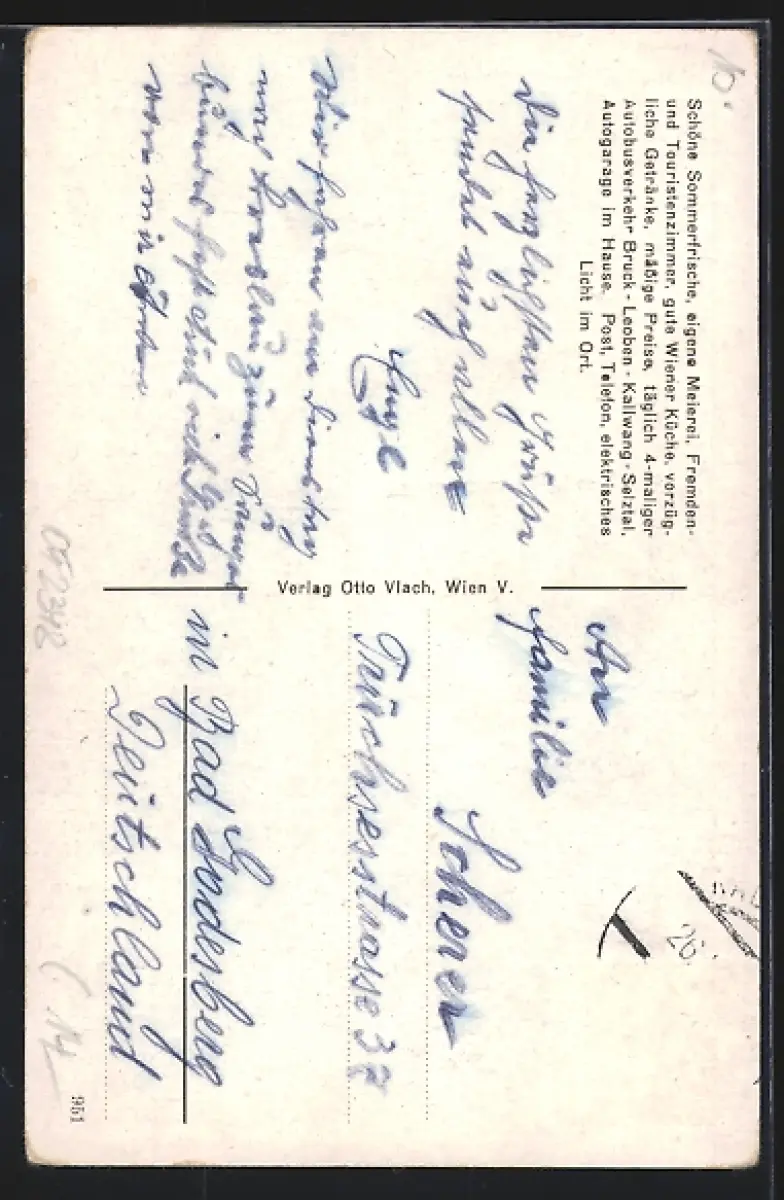 Schöne Sommerfrische, eigene Meierei, Fremden-
und Touristenzimmer, gute Wiener Küche, vorzüg-
liche Getränke, mäßige Preise, täglich 4-maliger
Autobusverkehr Bruck - Leoben - Kallwang - Selztal,
Autogarage im Hause. Post, Telefon, elektrisches
Licht im Ort.
10.
Die herzlichsten Grüße
sendet euch allen
Wir fahren am Dienstag
nach zum
von mir
Verlag Otto Vlach, Wien V.
An
Familie
Scherer
Trüchsesstrasse 37
in Bad Godesberg
Deutschland
26.
052348
951